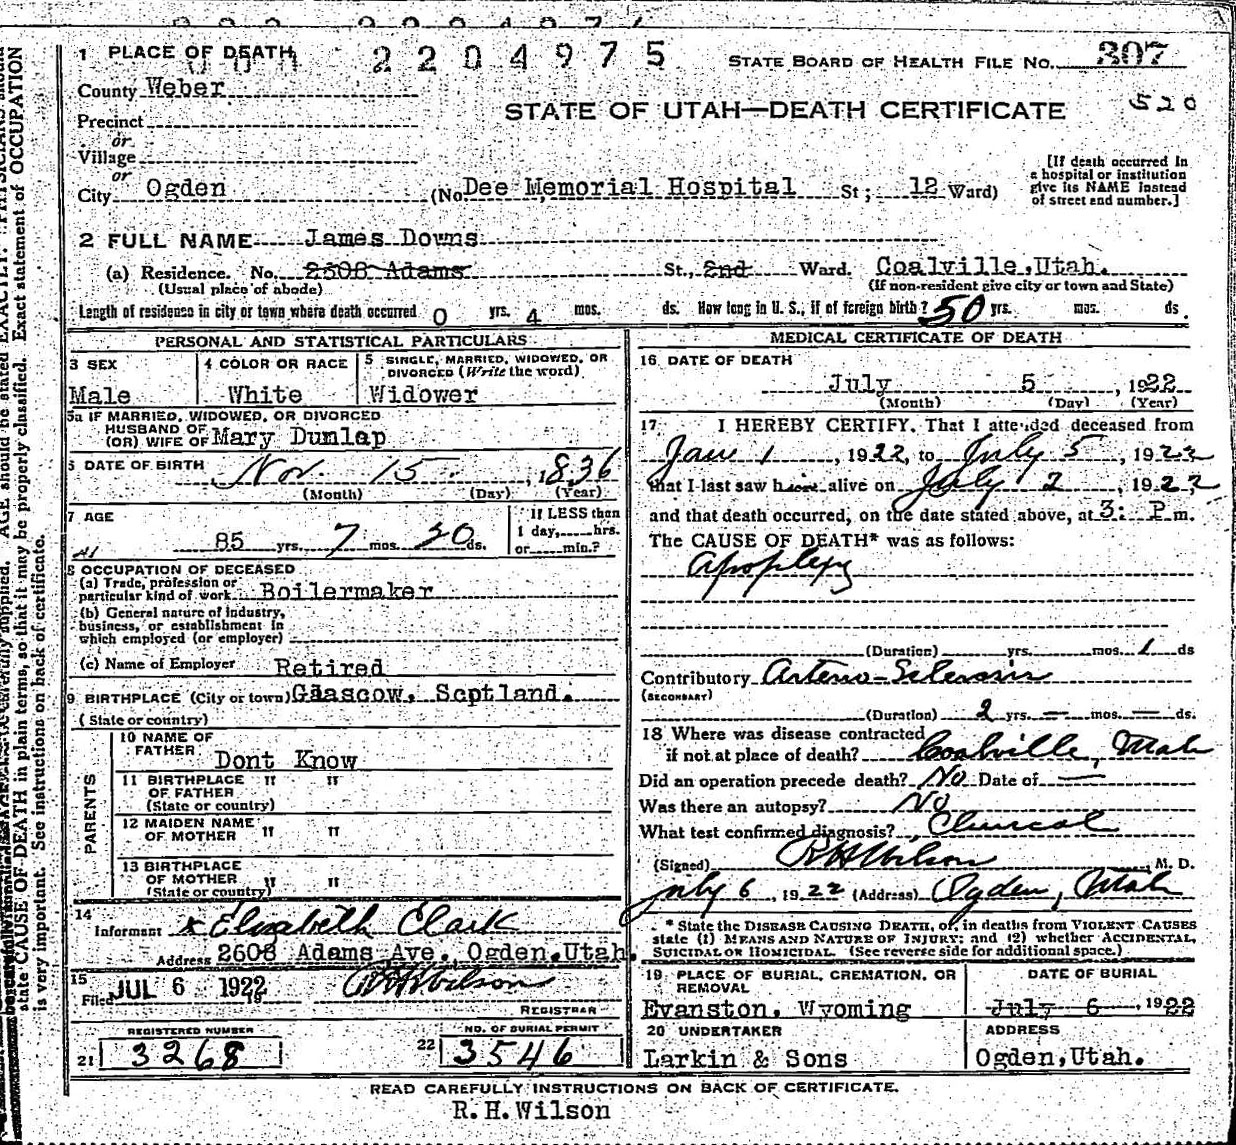 1 PLACE OF DEATH
2204975
STATE BOARD OF HEALTH FILE NO. 307
County Weber
STATE OF UTAH—DEATH CERTIFICATE 520
Precinct
or
Village
or
City Ogden (No. Dee Memorial Hospital St; 12 Ward)
[If death occurred in
a hospital or institution
give its NAME instead
of street and number.]
2 FULL NAME James Downs
(a) Residence. No. 2608 Adams St., 2nd Ward. Coalville, Utah.
(Usual place of abode) (If non-resident give city or town and State)
Length of residence in city or town where death occurred 0 yrs. 4 mos. ds. How long in U. S., if of foreign birth? 50 yrs. mos. ds.
PERSONAL AND STATISTICAL PARTICULARS
3 SEX
Male
4 COLOR OR RACE
White
5 SINGLE, MARRIED, WIDOWED, OR
DIVORCED (Write the word)
Widower
5a IF MARRIED, WIDOWED, OR DIVORCED
HUSBAND OF
(OR) WIFE OF Mary Dunlap
6 DATE OF BIRTH Nov. 15 , 1836
(Month) (Day) (Year)
7 AGE
85 yrs. 7 mos. 20 ds.
if LESS than
1 day,.....hrs.
or.....min.?
8 OCCUPATION OF DECEASED
(a) Trade, profession or
particular kind of work Boilermaker
(b) General nature of industry,
business, or establishment in
which employed (or employer)
(c) Name of Employer Retired
9 BIRTHPLACE (City or town) Glascow, Scptland.
(State or country)
PARENTS
10 NAME OF
FATHER Dont Know
11 BIRTHPLACE " "
OF FATHER
(State or country)
12 MAIDEN NAME
OF MOTHER " "
13 BIRTHPLACE
OF MOTHER
(State or country) " "
14
Informant x Elizabeth Clark
Address 2608 Adams Ave, Ogden, Utah.
15
Filed JUL 6 1922 R H Wilson
REGISTRAR
REGISTERED NUMBER
21 3268
NO. OF BURIAL PERMIT
22 3546
MEDICAL CERTIFICATE OF DEATH
16 DATE OF DEATH
July 5 , 1922
(Month) (Day) (Year)
17 I HEREBY CERTIFY, That I attended deceased from
Jan 1 , 1922, to July 5 , 1922
that I last saw him alive on July 2 , 1922,
and that death occurred, on the date stated above, at 3: P m.
The CAUSE OF DEATH* was as follows:
Apoplexy
(Duration) yrs. mos. 1 ds
Contributory Arterio-Sclerosis
(SECONDARY)
(Duration) 2 yrs. — mos. — ds.
18 Where was disease contracted
if not at place of death? Coalville, Utah
Did an operation precede death? No Date of —
Was there an autopsy? No
What test confirmed diagnosis? Clinical
(Signed) R H Wilson , M. D.
July 6 , 1922 (Address) Ogden, Utah
* State the DISEASE CAUSING DEATH, or, in deaths from VIOLENT CAUSES
state (1) MEANS AND NATURE OF INJURY; and (2) whether ACCIDENTAL,
SUICIDAL OR HOMICIDAL. (See reverse side for additional space.)
19 PLACE OF BURIAL, CREMATION, OR
REMOVAL
Evanston, Wyoming
DATE OF BURIAL
July 6 , 1922
20 UNDERTAKER
Larkin & Sons
ADDRESS
Ogden, Utah.
READ CAREFULLY INSTRUCTIONS ON BACK OF CERTIFICATE.
R. H. Wilson
AGE should be stated EXACTLY. PHYSICIANS should
state CAUSE OF DEATH in plain terms, so that it may be properly classified. Exact statement of OCCUPATION
is very important. See instructions on back of certificate.